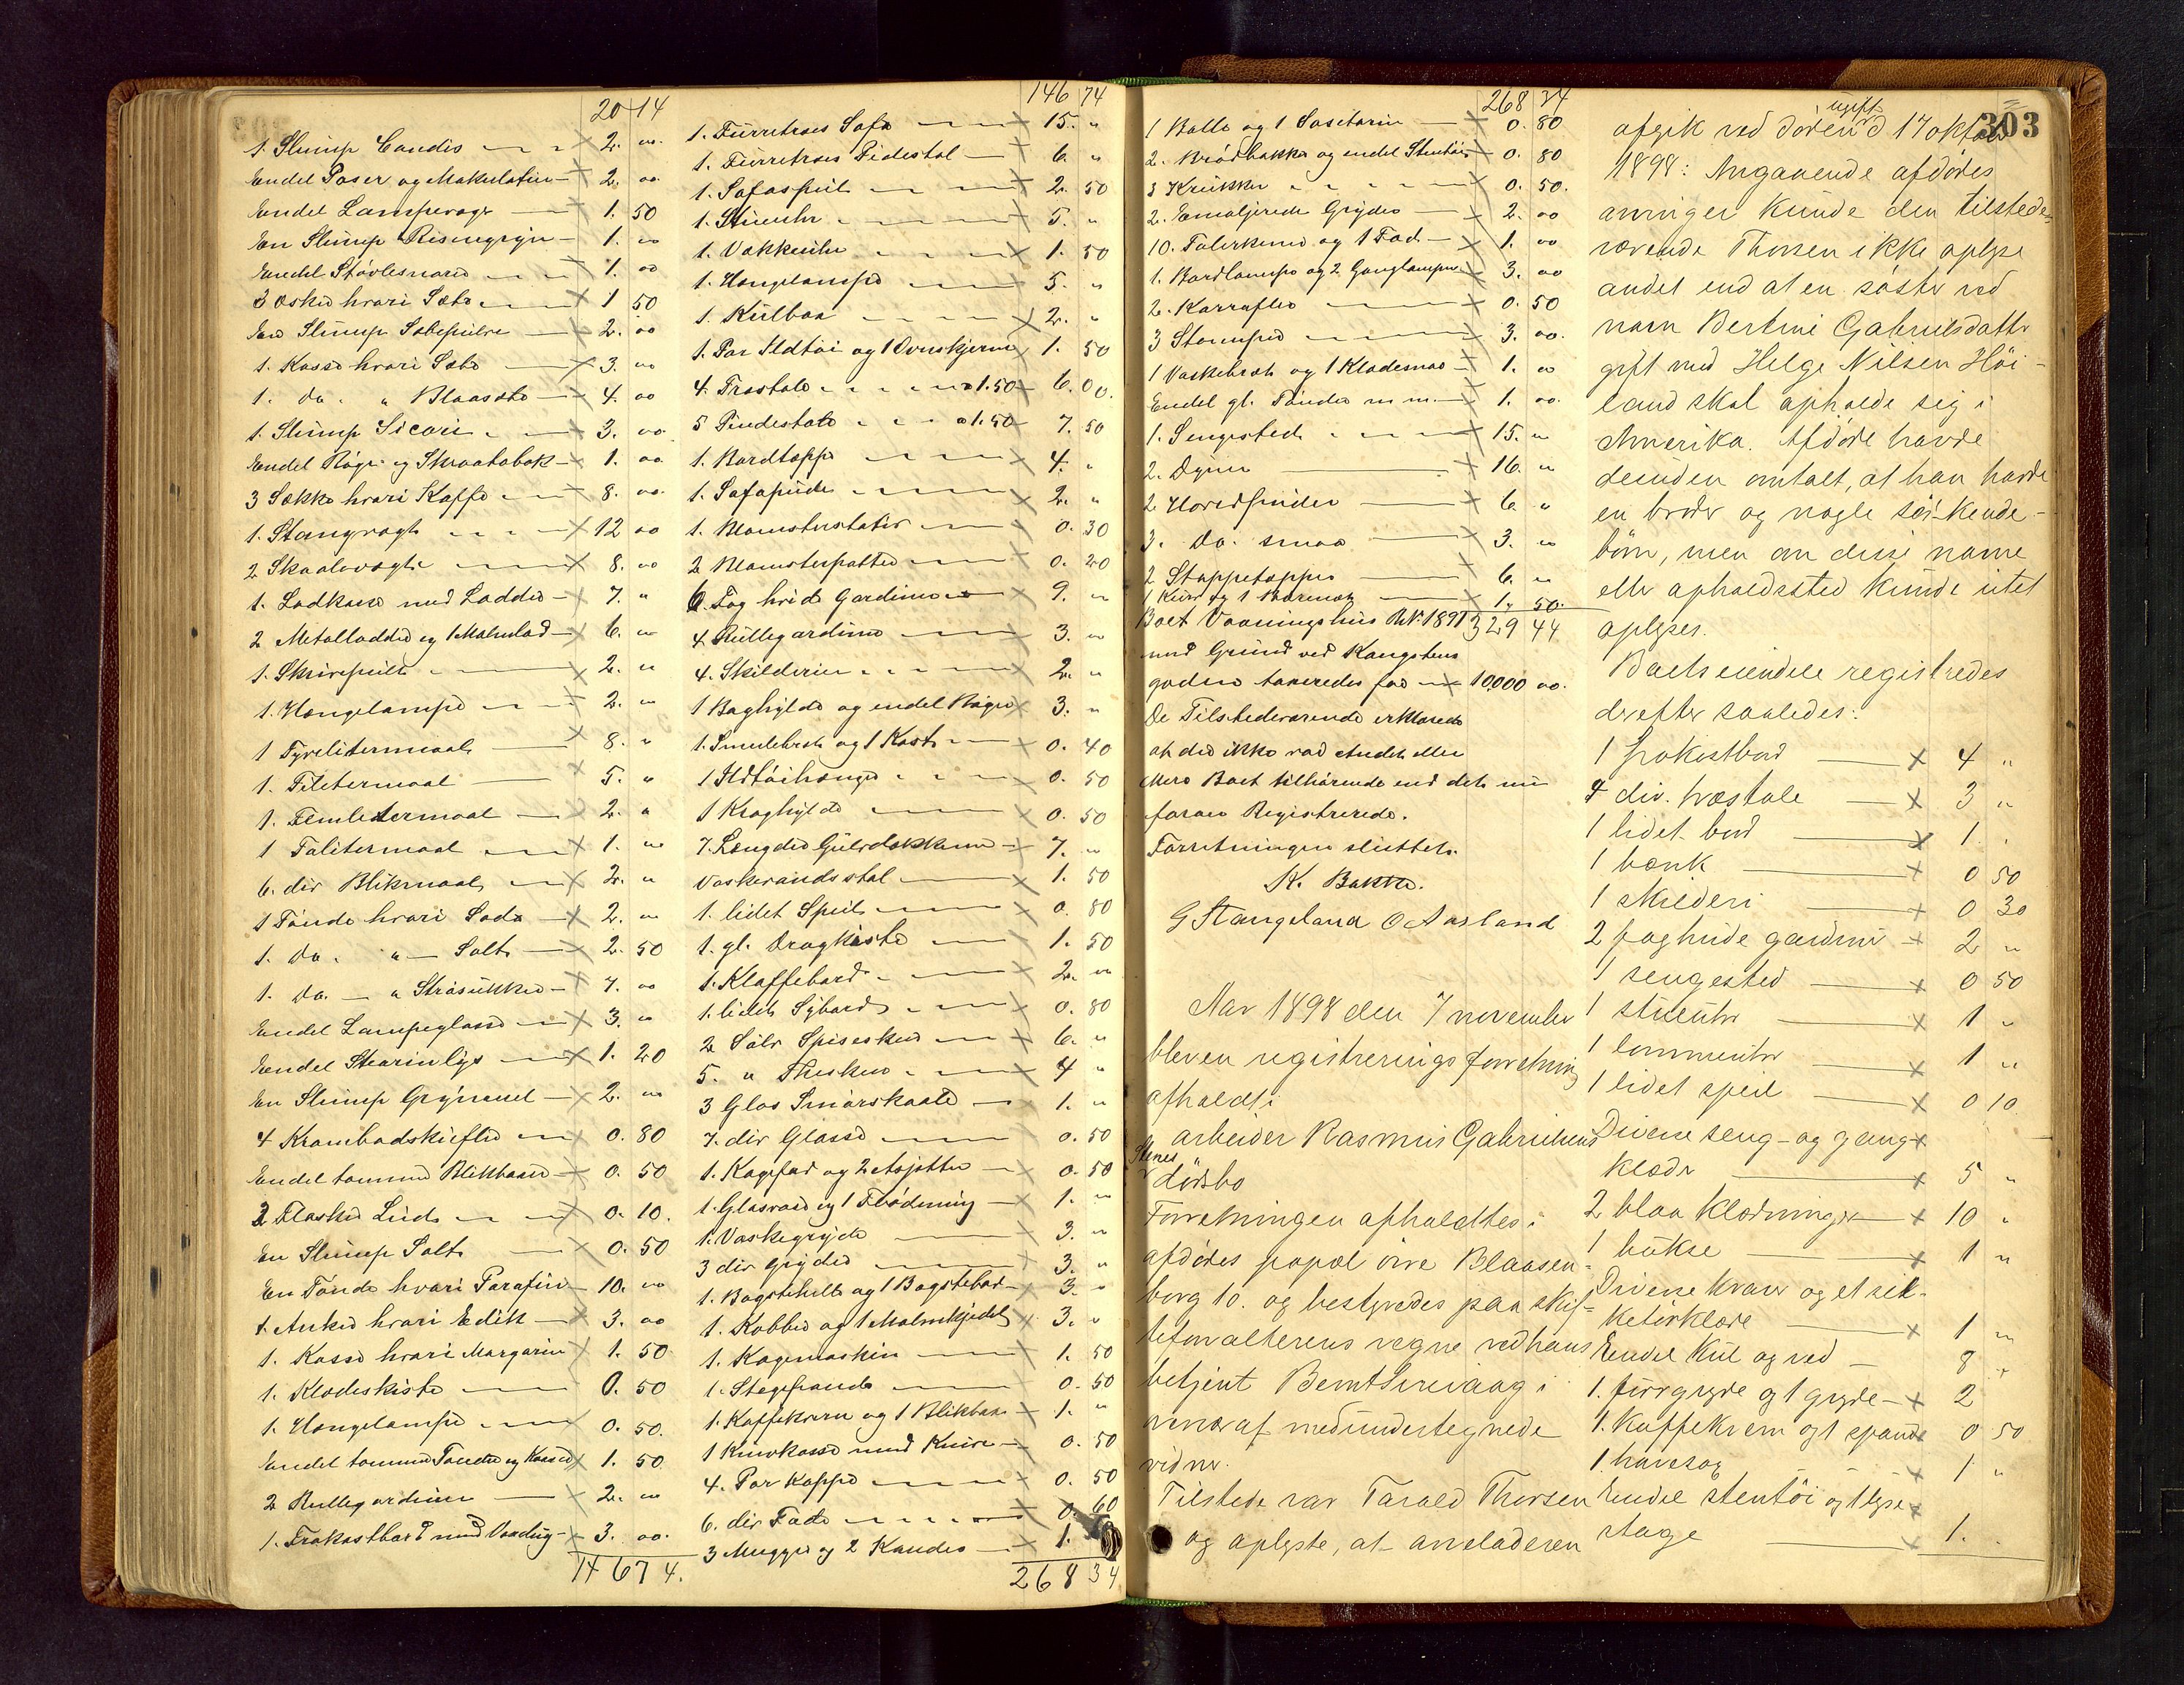 20 14
1. Slump Candis 2. 00.
Endel Poser og Makulatur 2. 00
Endel Lampevæger 1. 50
En Slump Risengryn 1. 00
Endel Støvlesnore 1. 00
3 Æsker hvori Sæbe 1 50
En Slump Sæbepulver 2. 00
1. Kasse hvori Sæbe 3. 00
1. do. " Blaasæbe 4. 00
1. Slump Sicori 3. 00.
Endel Røge og Skraatobak 1. 00
3 Sække hvori Kaffe 8. 00.
1. Stangvægt 12 00
2 Skaalvægte 8. 00
1. Lodkasse med Lodder 7. "
2 Metallodder og 1 Malmlod 6. "
1. Skrivepult 2. "
1. Hængelampe 2. "
1 Tyvelitermaal 8. "
1. Tilitermaal 5. "
1. Femlitermaal 2. "
1 Tolitermaal 1. "
6. div Blikmaal 2. "
1 Tønde hvori Soda 2. "
1. do. " Salt 2. 50
1. do. " Strøsukker 7. 00
Endel Lampeglasse 3. "
Endel Stearinlys 1. 20
En Slump Grynmel 2. "
4 Krambodskuffer 0. 80
Endel tomme Blikbaser 0. 50
2 Flasker Lud 0. 10.
En Slump Salt 0. 50
En Tønde hvori Parafin 10. 00
1 Anker hvori Edik 3. 00
1. Kasse hvori Margarin 1. 50
1. Klædeskiste 0. 50
1. Hængelampe 0. 50.
Endel tomme Tønder og Kasser 1. 50
2 Rullegardiner 2. "
1. Frokostbord med Voxdug 3. 00.
146 74.
146 74
1. Furretræs Sofa 15. "
1. Furretræs Pidestal 6. "
1. Sofaspeil 2. 50
1. Stueuhr 5. "
1. Vækkeuhr 1. 50
1. Hængelampe 5. "
1. Kulbox 2. "
1. Par Ildtøi og 1 Ovnskjerm 1. 50
4. Træstole a 1.50 6. 00.
5 Pindestole a 1.50 7. 50
1. Bordtæppe 4. "
1. Sofapude 2. "
1. Blomsterstativ 0. 30
2 Blomsterpotter 0. 20
6 Fag hvide Gardiner 9. "
4 Rullegardiner 3. "
4. Skilderier 2. "
1 Boghylde og endel Bøger 3. "
1. Smulebret og 1 Kost 0. 40
1 Ildtøihænger 0. 50
1 Kraghylde 0. 50
7. Længder Gulvdækkener 7. "
Vaskevandsstol 1. 50
1. lidet Speil 0. 80
1. gl. Dragkiste 1. 50
1. Klaffebord 2. "
1. lidet Sybord 0. 80
2 Sølv Spiseskeer 6. "
5. " Theskeer 4 "
3 Glas Smørskaale 1. "
7. div Glasse 0. 50
1. Kagefad og 2 Asjetter 0. 50
1. Glasvase og 1 Fløde 1. "
1. Vaskegryde 3. "
3 div Gryder 3. "
1. Bagstehelle og 1 Bagstebord 3. "
1. Kobber og 1 Malmkjedel 3. "
1. Kogemaskin 1. 50
1. Stegepande 0. 50
1. Kaffekvern og 1 Blikbox 1. "
1 Knivkasse med Knive 0. 50
4. Par Kopper 0. 50
6. div Fade 0. 60
3 Mugger og 2 Kander 1.
268 34
268 34
1 Bolle og 1 0. 80
2. Brødbakker og endel Stentøi 0. 80
3 Krukker 0. 50.
2. Emaljerede Gryder 2. 00
10. Talerkener og 1 Fad 1. 00
1. Bordlampe og 2 Ganglamper 3. 00
2. Karafler 0. 50
3 Stamper 3. 00.
1 Vaskebræt og 1 Klædesnor 1. 00
Endel gl. Tønder m.m. 1. 00.
1. Sengested 15. "
2. Dyner 16. "
2 Hovedpuder 6. "
3. do. smaa 3. "
2 Stoppetæpper 6. "
1 Kurv og 1 1. 50.
329 44
Boet Vaaningshus Br.N: 1891
med Grund ved Kongsteens
gaden taxeredes for 10,000 00.
De Tilstedeværende erklærede
at der ikke var Andet eller
Mere Boet tilhørende end det nu
foran Registrerede.
Forretningen sluttet.
K. Bakke.
G Stangeland O Aarsland
Aar 1898 den 7 november
blev en registreringsforretning
afholdt i
arbeider Rasmus Gabrielsens
Stenes
dødsbo
Forretningen afholdtes i
afdødes popæl øvre Blaasen-
borg 10. og bestyredes paa skif-
teforvalterens vegne ved hans
betjent Berntsen i
nærvær af medundertegnede
vidner.
Tilstede var Tarald Thorsen
og oplyste, at arveladeren
303
ugift
afgik ved døden d 17 oktbr
1898: Angaaende afdødes
arvinger kunde den tilstede-
værende Thorsen ikke oplyse
andet end at en søster ved
navn Bertine Gabrielsdatter
gift med Helge Nilsen Høi-
land skal opholde sig i
Amerika. Afdøde havde
desuden omtalt, at han havde
en broder og nogle søskende-
børn, men om disse navne
eller opholdssted kunde intet
oplyses.
Boets eiendele registredes
derefter saaledes:
1 frokostbord 4 "
4 div. træstole 3 "
1 lidet bord 1 "
1 bænk 0 50
1 skilderi 0 30
2 fag hvide gardiner 2 "
1 sengested 0 50
1 stueuhr 1 "
1 lommeuhr 1 "
1 lidet speil 0 10
Diverse seng- og gang-
klæder 5 "
2 blaa klædninger 10 "
1 bukse 1 "
Diverse kraver og et sil-
ketørklæde 1 "
Endel kul og ved 8 "
1. fiirgryde og 1 gryde 2
1. kaffekvern og 1 spand 0 50
1 havesag 1 "
Endel stentøi og 1 lyse-
stage 1.